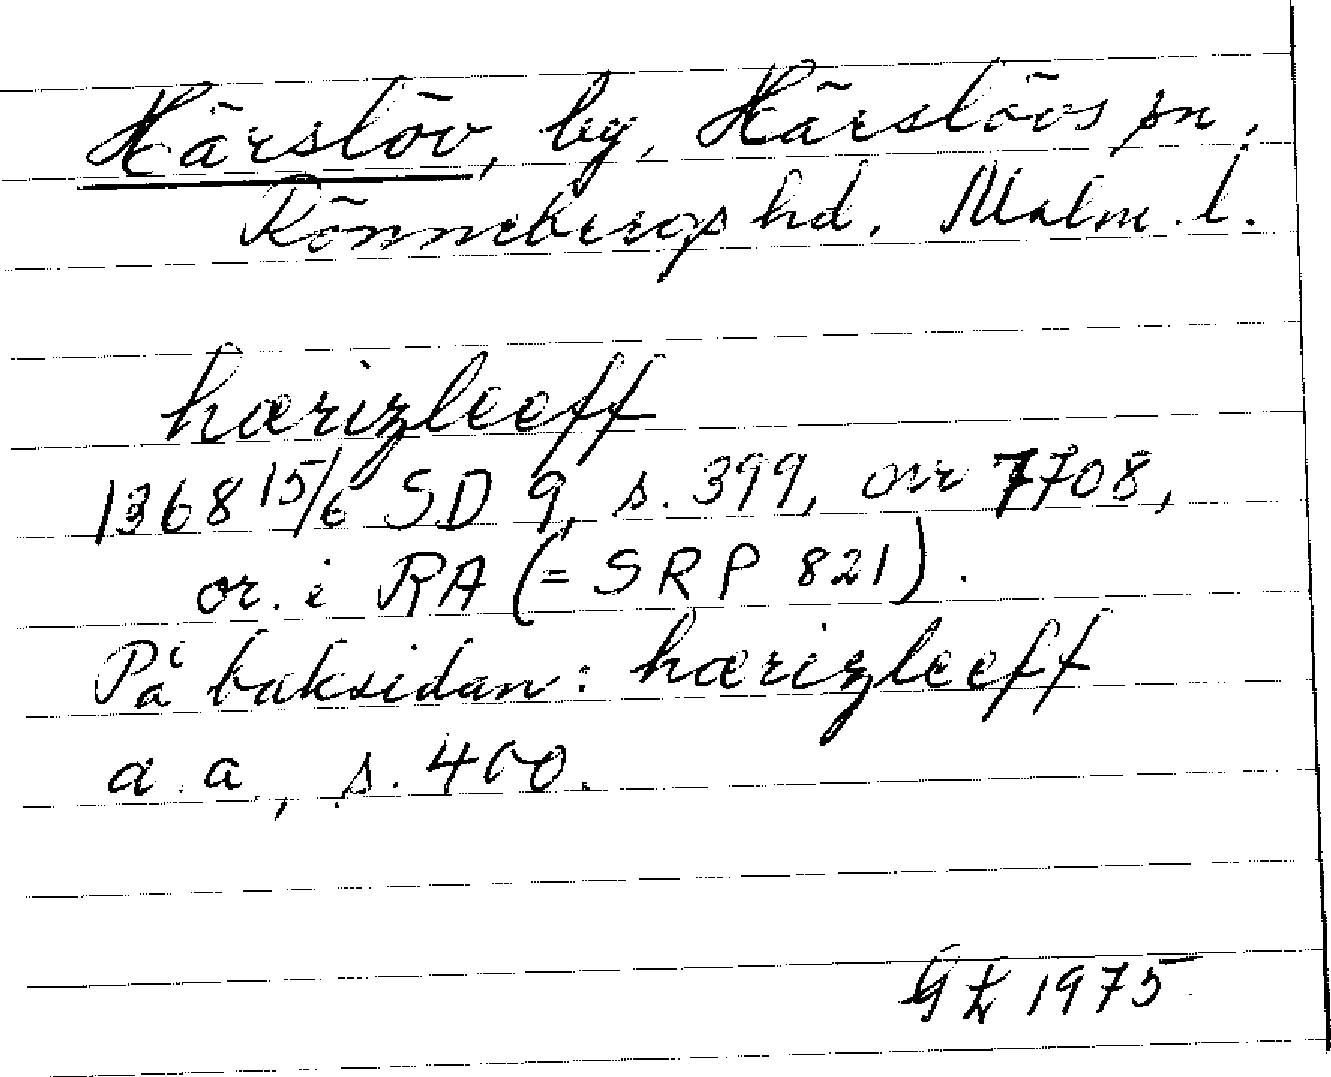 Härslöv, by, Härslövs sn,
Rönnebergs hd. Malm. l.
hærizleeff
1368 15/6 SD 9, s. 399, nr 7708,
or. i RA (= SRP 821).
På baksidan: hærizleeff
a. a., s. 400.
1975